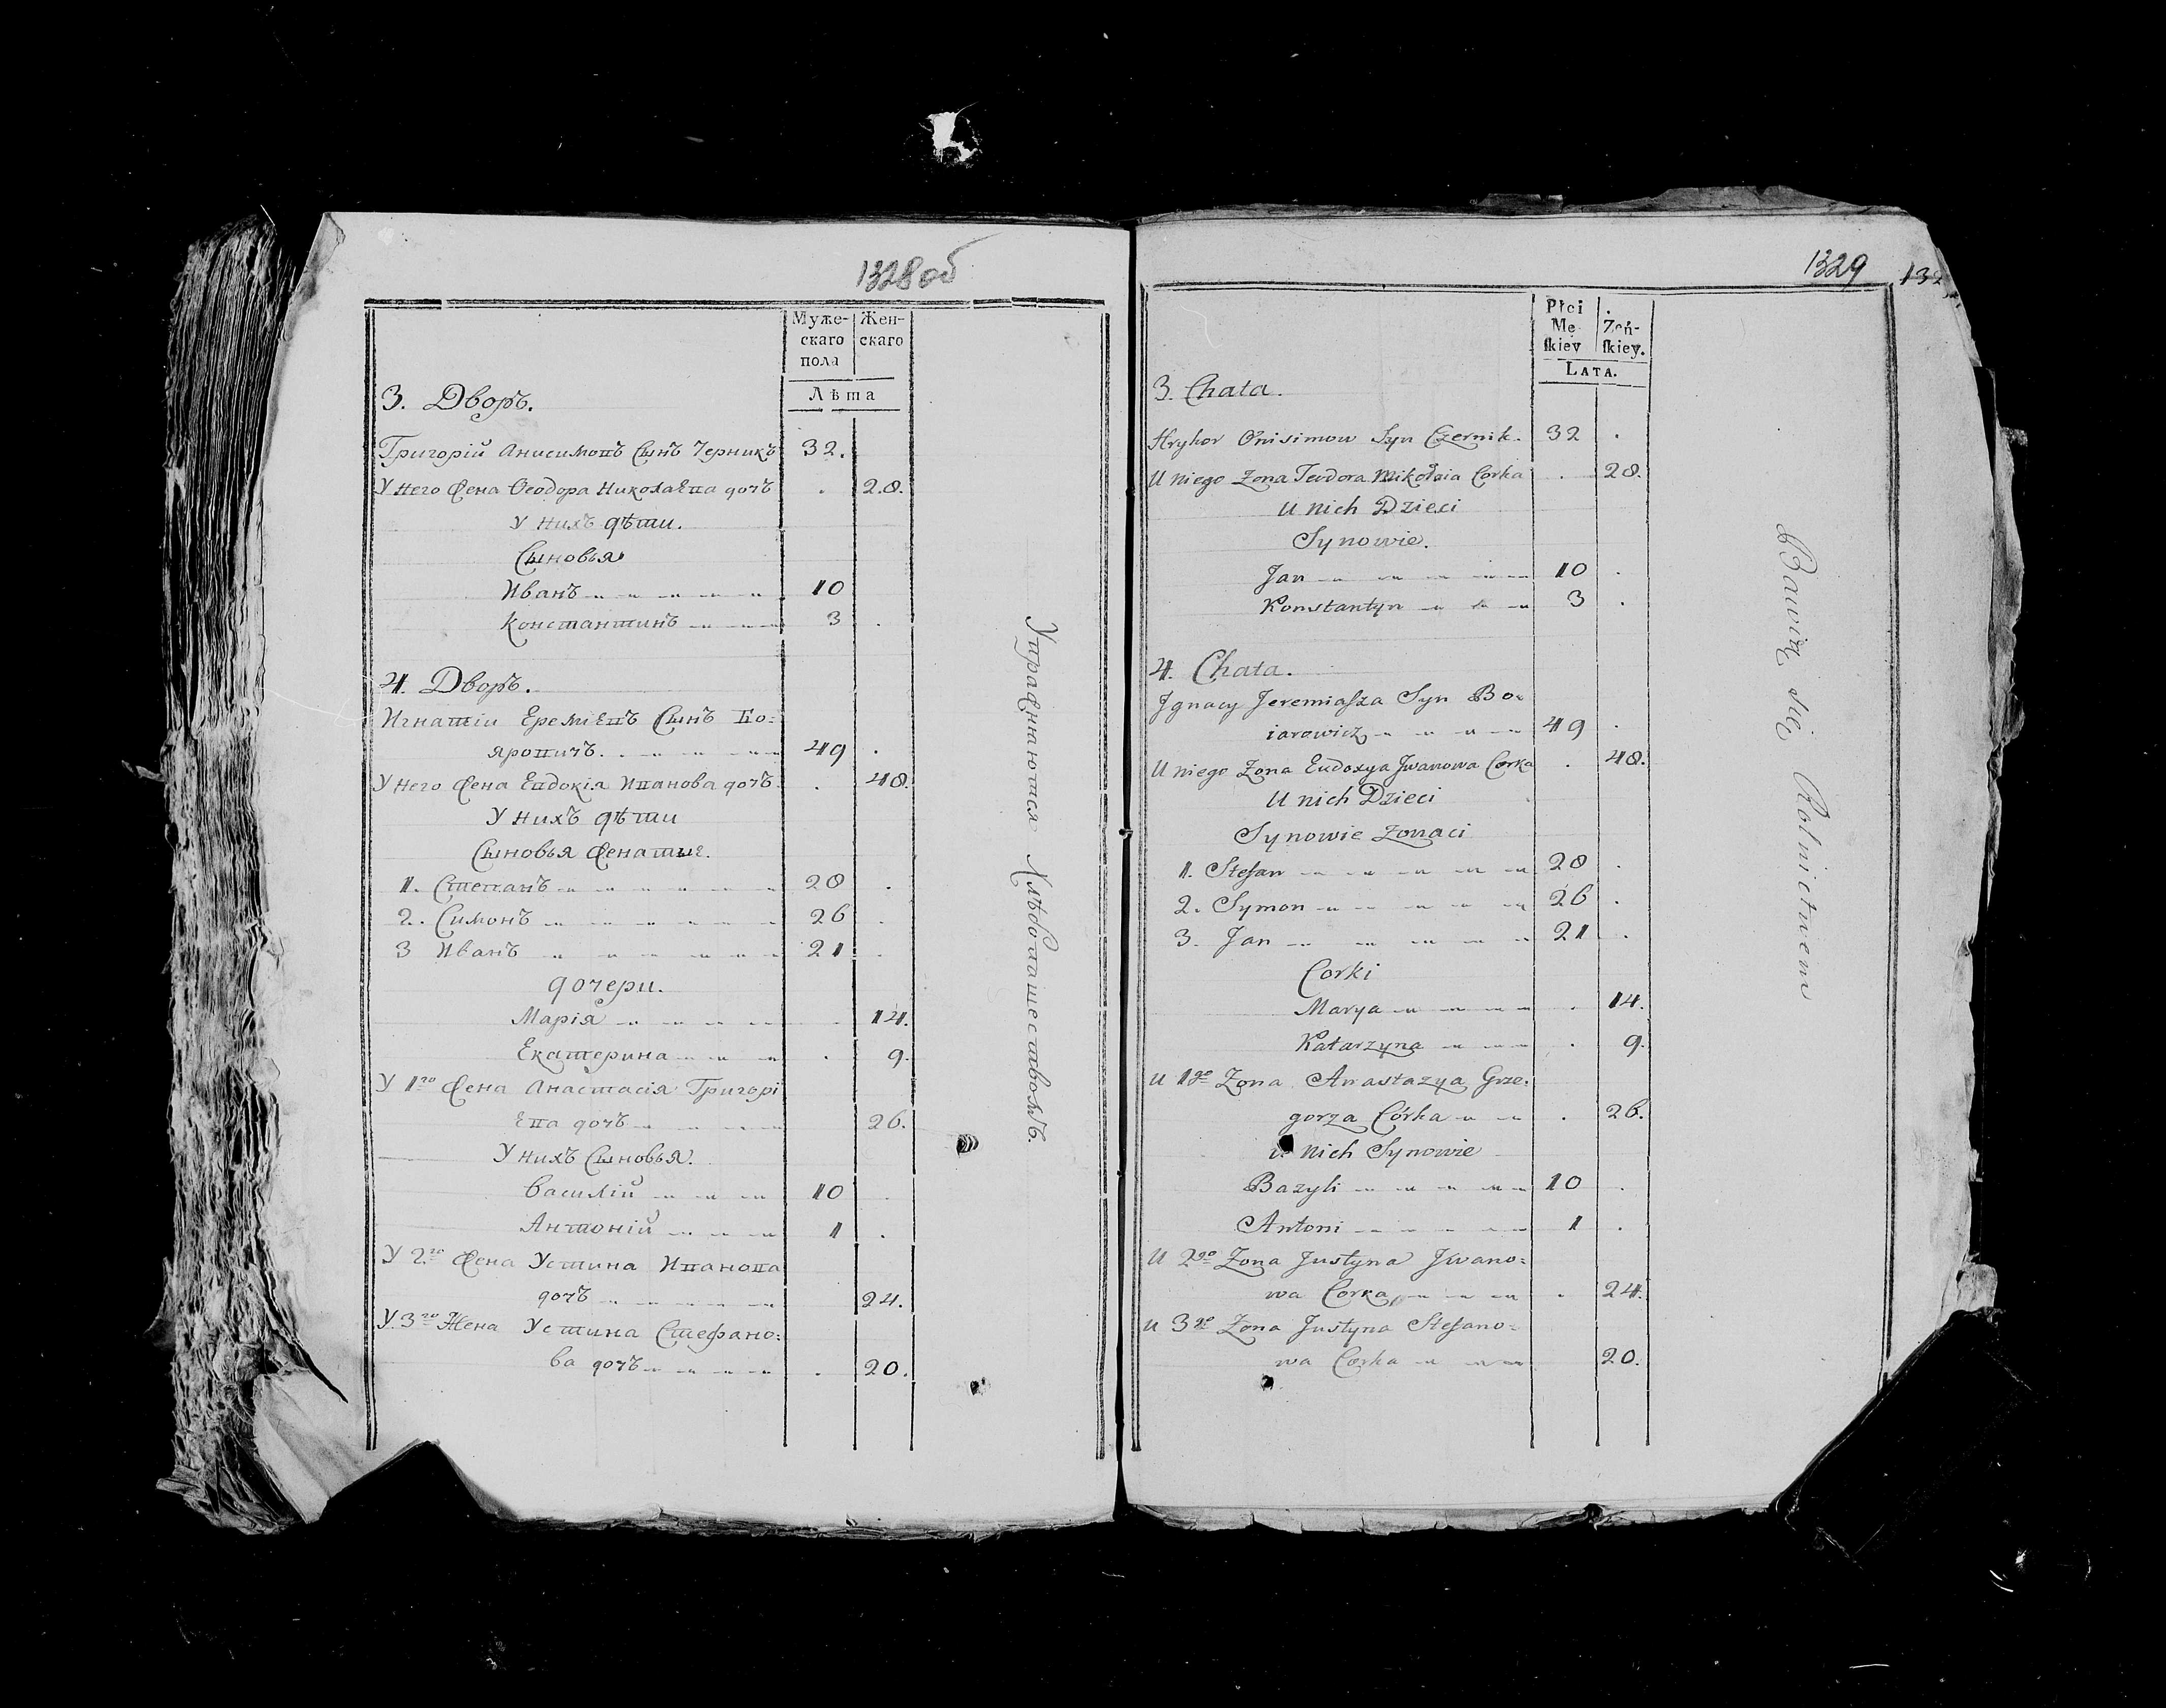 1328об
Муже-
скаго
пола
Жен-
скаго
Лѣта
3. Дворъ.
Григорій Анисимовъ Сынъ Черникъ 32.
У Него Жена Ѳеодора Николаева дочь . 28.
У Нихъ дѣти.
Сыновья
Иванъ 10
Константинъ 3 .
4. Дворъ.
Игнатіи Еремѣевъ Сынъ Бо=
яровичъ. 49 .
У Него Жена Евдокія Иванова дочь . 48.
У Нихъ дѣти
Сыновья Женатые.
1. Степанъ 28 .
2. Симонъ 26 .
3 Иванъ 21 .
дочери.
Марія . 14.
Екатерина . 9.
У 1го Жена Анастасія Григорі
ева дочь 26.
У Нихъ Сыновья.
Василій 10 .
Антоній 1 .
У 2го Жена Устина Иванова
дочь 24.
У 3го Жена Устина Стефано=
ва дочь . 20.
Упражняются Хлѣбопашествомъ.
1329
132
Płci
Mę
skiey
Zeń-
skiey.
LATA.
3. Chata.
Hryhor Onisimow Syn Czernik. 32 .
U niego Zona Teodora Mikołaia Corka . 28.
U nich Dzieci
Synowie.
Jan 10 .
Konstantyn 3 .
4. Chata.
Jgnacy Jeremiasza Syn Bo=
iarowicz 49 .
U niego Zona Eudoxya Jwanowa Corka . 48.
U nich Dzieci
Synowie Zonaci
1. Stefan 28 .
2. Symon 26 .
3. Jan 21 .
Corki
Marya . 14.
Katarzyna . 9.
U 1go Zona Anastazya Grze=
gorza Córka . 26.
U nich Synowie
Bazyli 10 .
Antoni 1 .
U 2go Zona Justyna Jwano=
wa Corka . 24.
U 3go Zona Justyna Stefano=
wa Corka 20.
Bawią się Rolnictwem